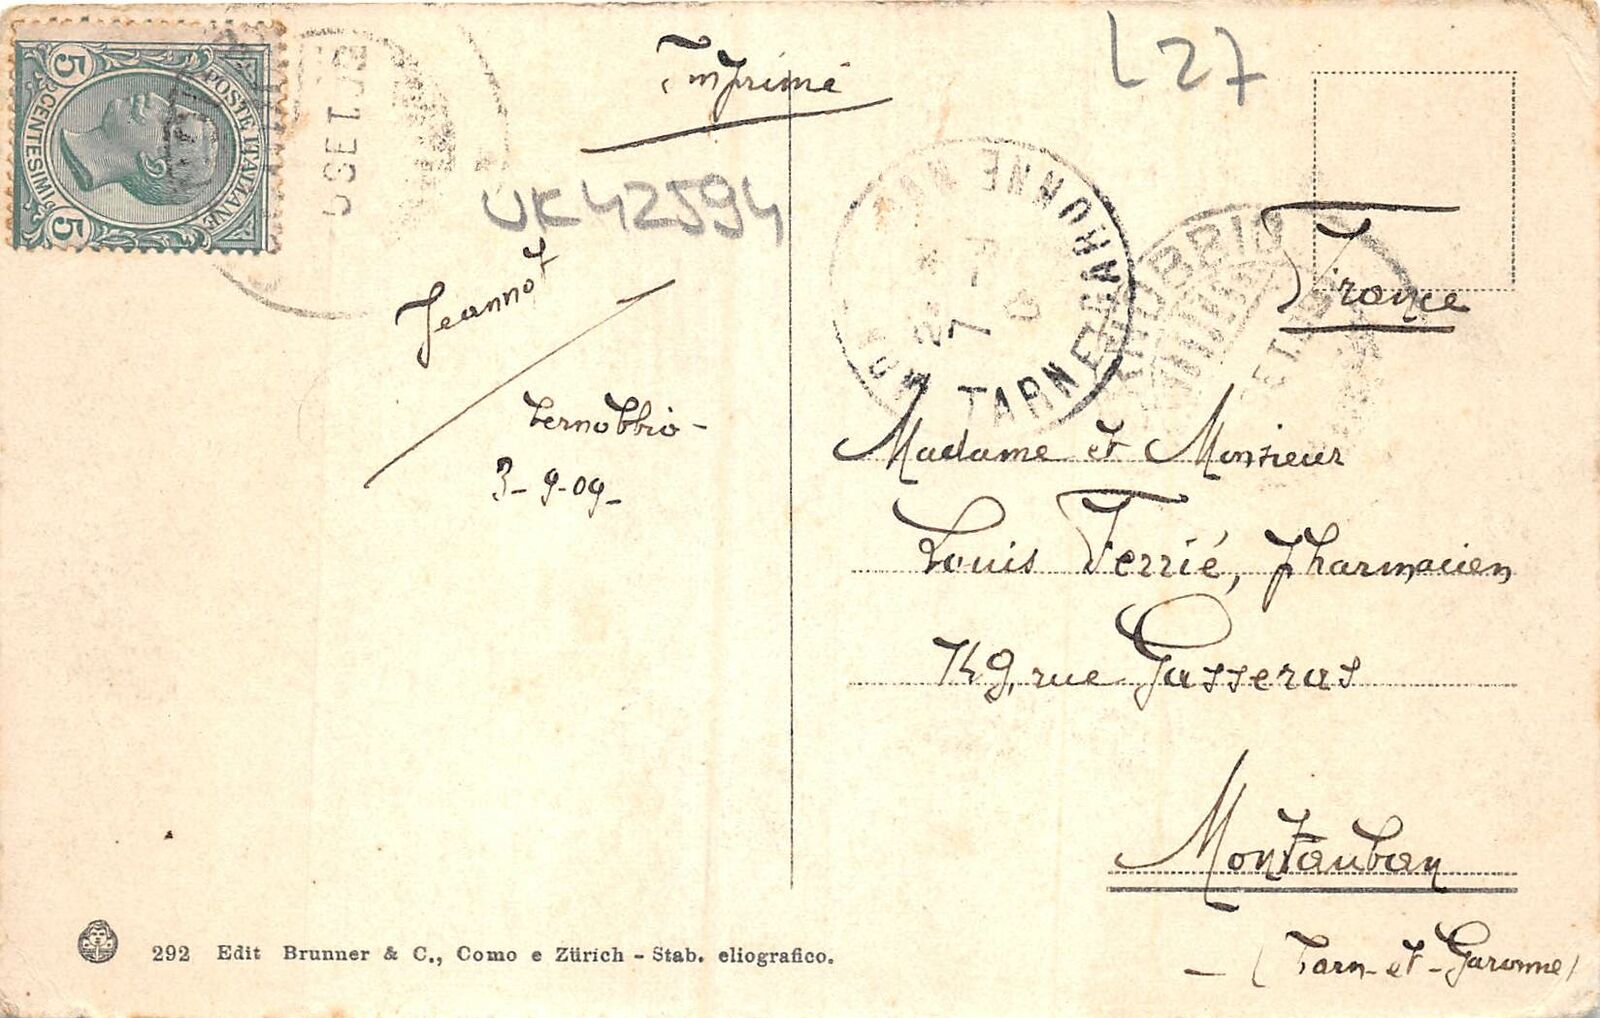 L27
Imprimé
5 CENTESIMI 5
POSTE ITALIANE
UK42594
Jeannot
Cernobbio -
3-9-09-
TARN ET GARONNE
France
Madame et Monsieur
Louis Ferrié, pharmacien
149, rue Gasseras
Montauban
- (Tarn-et-Garonne)
292 Edit Brunner & C., Como e Zürich - Stab. eliografico.